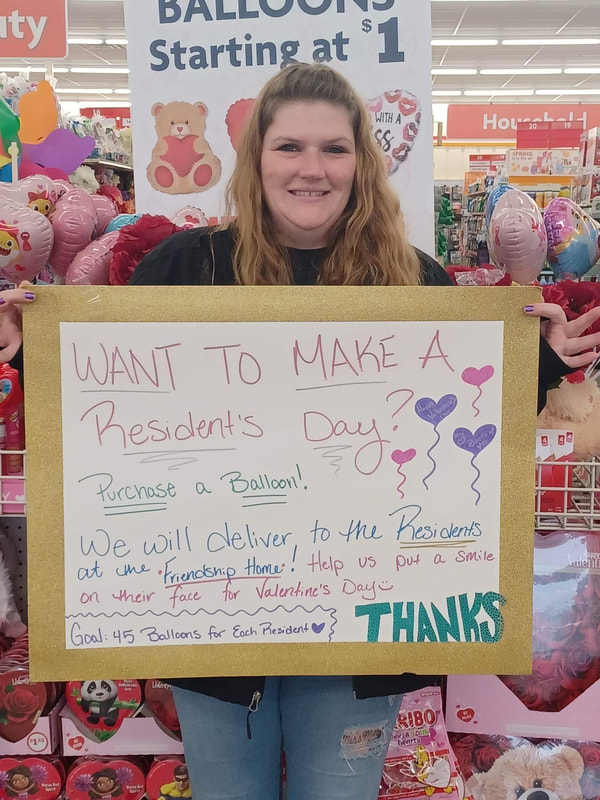 uty
BALLOONS
Starting at $1
WITH A
SS
Household
20 19
SPRING
WANT TO MAKE A
Resident's Day?
Happy Valentine's
Purchase a Balloon!
We will deliver to the Residents
at the "Friendship Home"! Help us put a smile
on their face for Valentine's Day
Goal: 45 Balloons for Each Resident
THANKS
RIBO
hearts
$1.25